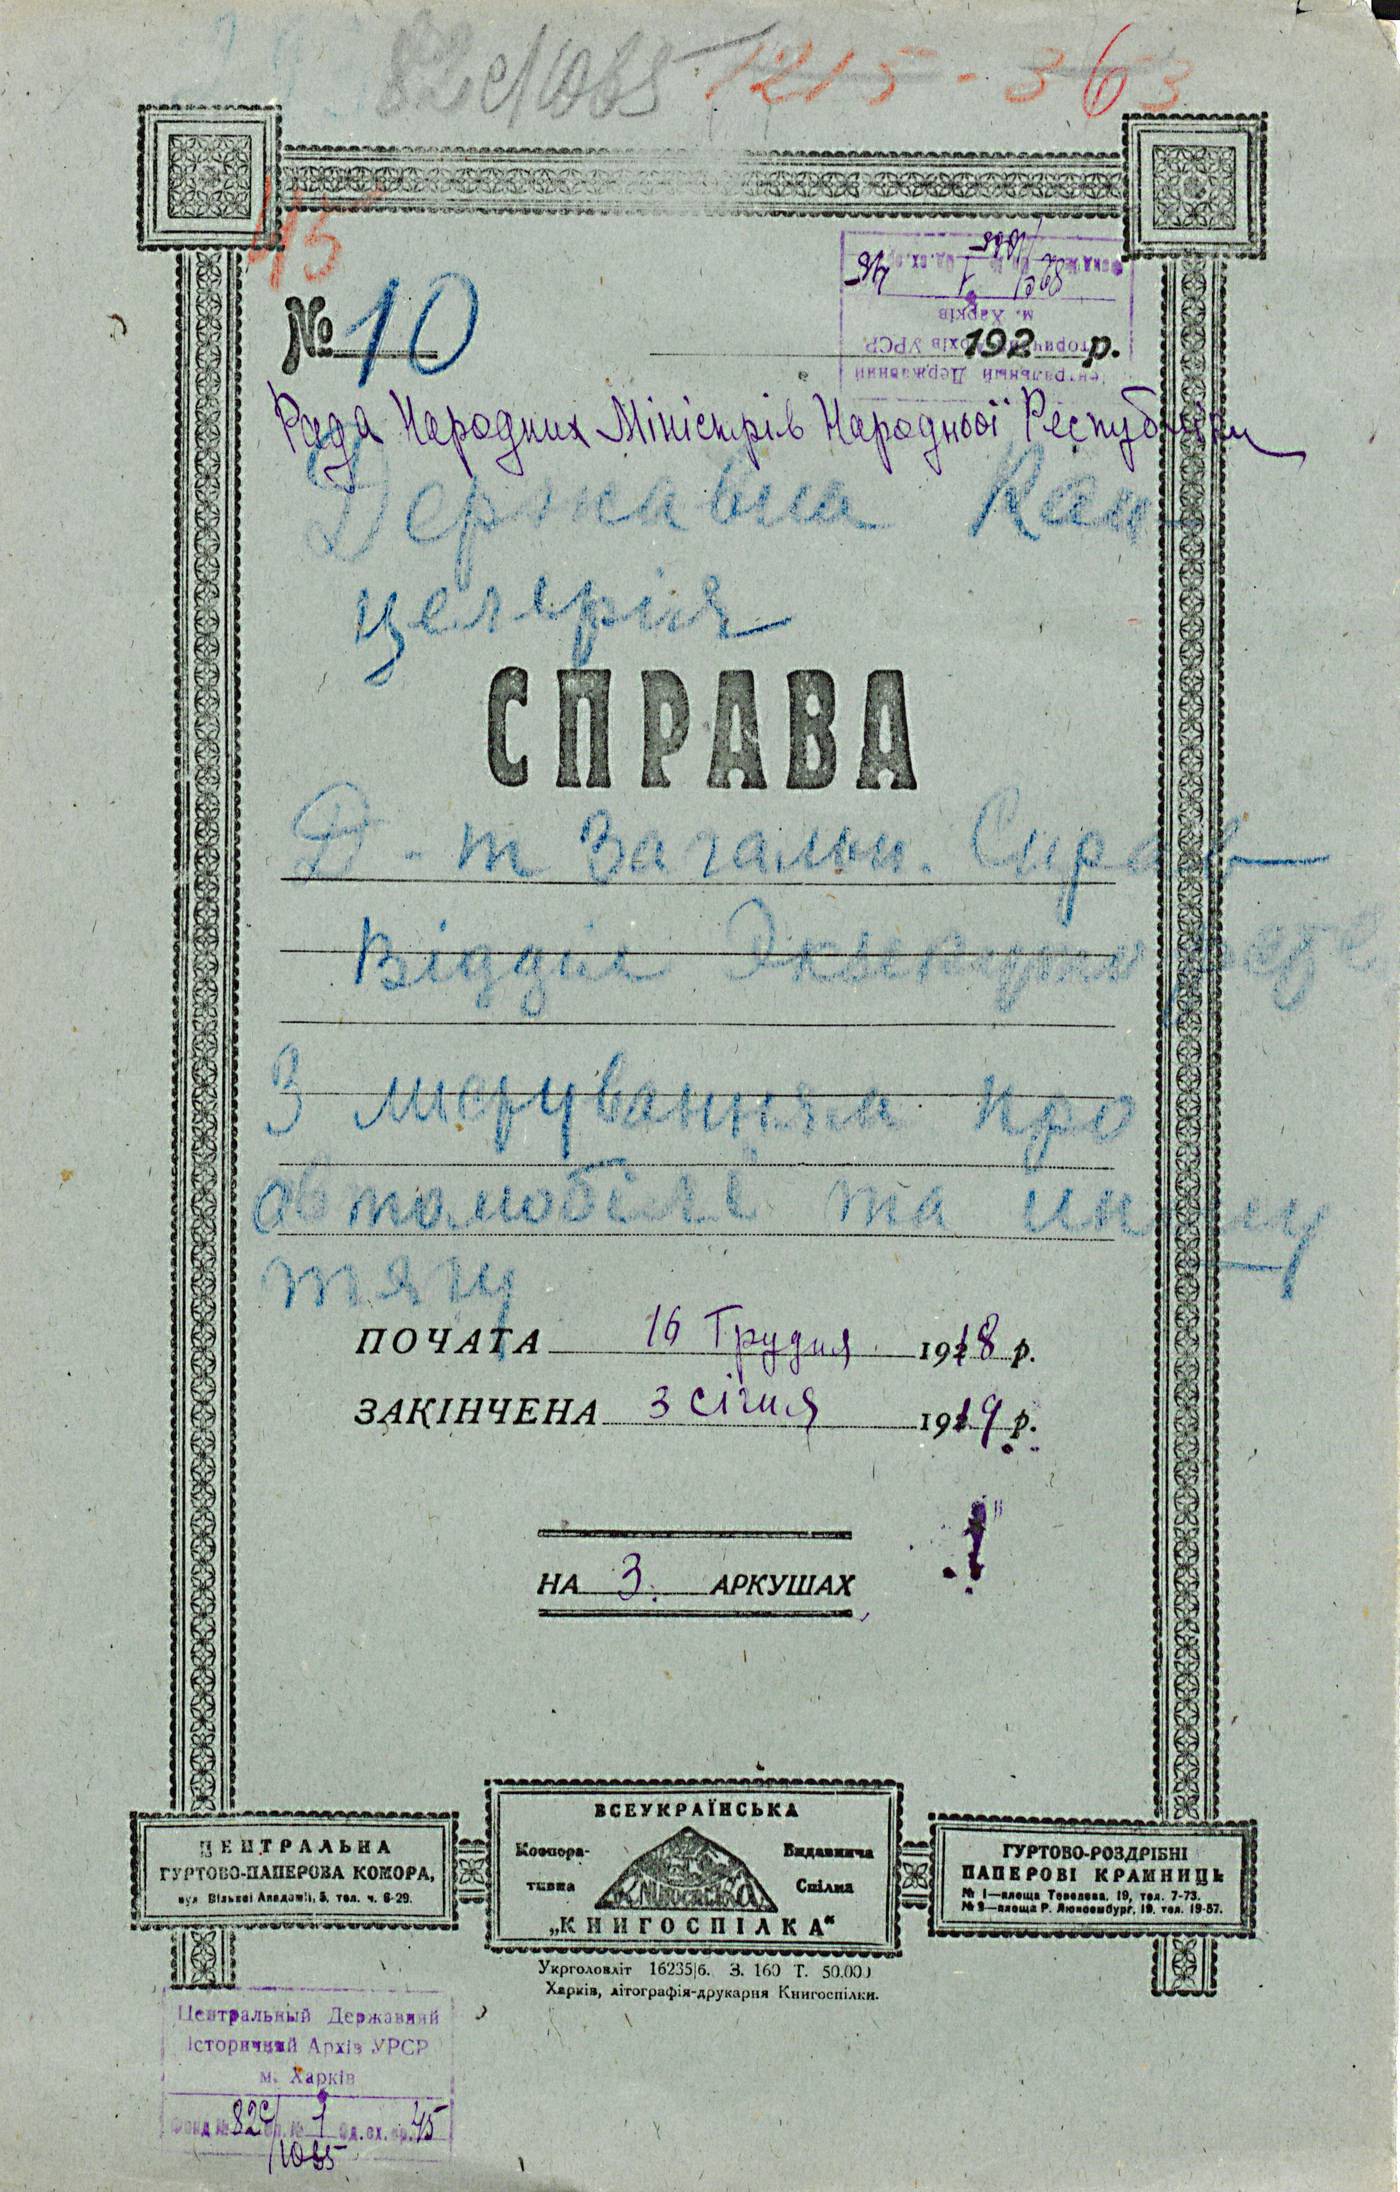 82с/1065 1215-363
45
№ 10
192 р.
Рада Народних Міністрів Народньої Республіки
Державна Кан-
целярія
СПРАВА
Д-т Загальн. Справ
Відділ
З листуванням про
автомобілі та иншу
тягу
ПОЧАТА 16 Грудня 1918 р.
ЗАКІНЧЕНА 3 січня 1919 р.
НА 3. АРКУШАХ
ЦЕНТРАЛЬНА
ГУРТОВО-ПАПЕРОВА КОМОРА,
вул. Вільної Академії, 5, тел. ч. 6-29.
ВСЕУКРАЇНСЬКА
Коопора-
тивна
Видавнича
Спілка
КНИГОСПІЛКА
„КНИГОСПІЛКА“
ГУРТОВО-РОЗДРІБНІ
ПАПЕРОВІ КРАМНИЦЬ
№ 1—площа Тевелева, 19, тел. 7-73.
№ 2—площа Р. Люксембург, 19, тел. 19-57.
Укрголовліт 16235/б. З. 160 Т. 50.000
Харків, літографія-друкарня Книгоспілки.
Центральный Державний
Історичний Архів УРСР
м. Харків
Фонд № 82с/1065 оп. № 1 Од. сх. №р. 45